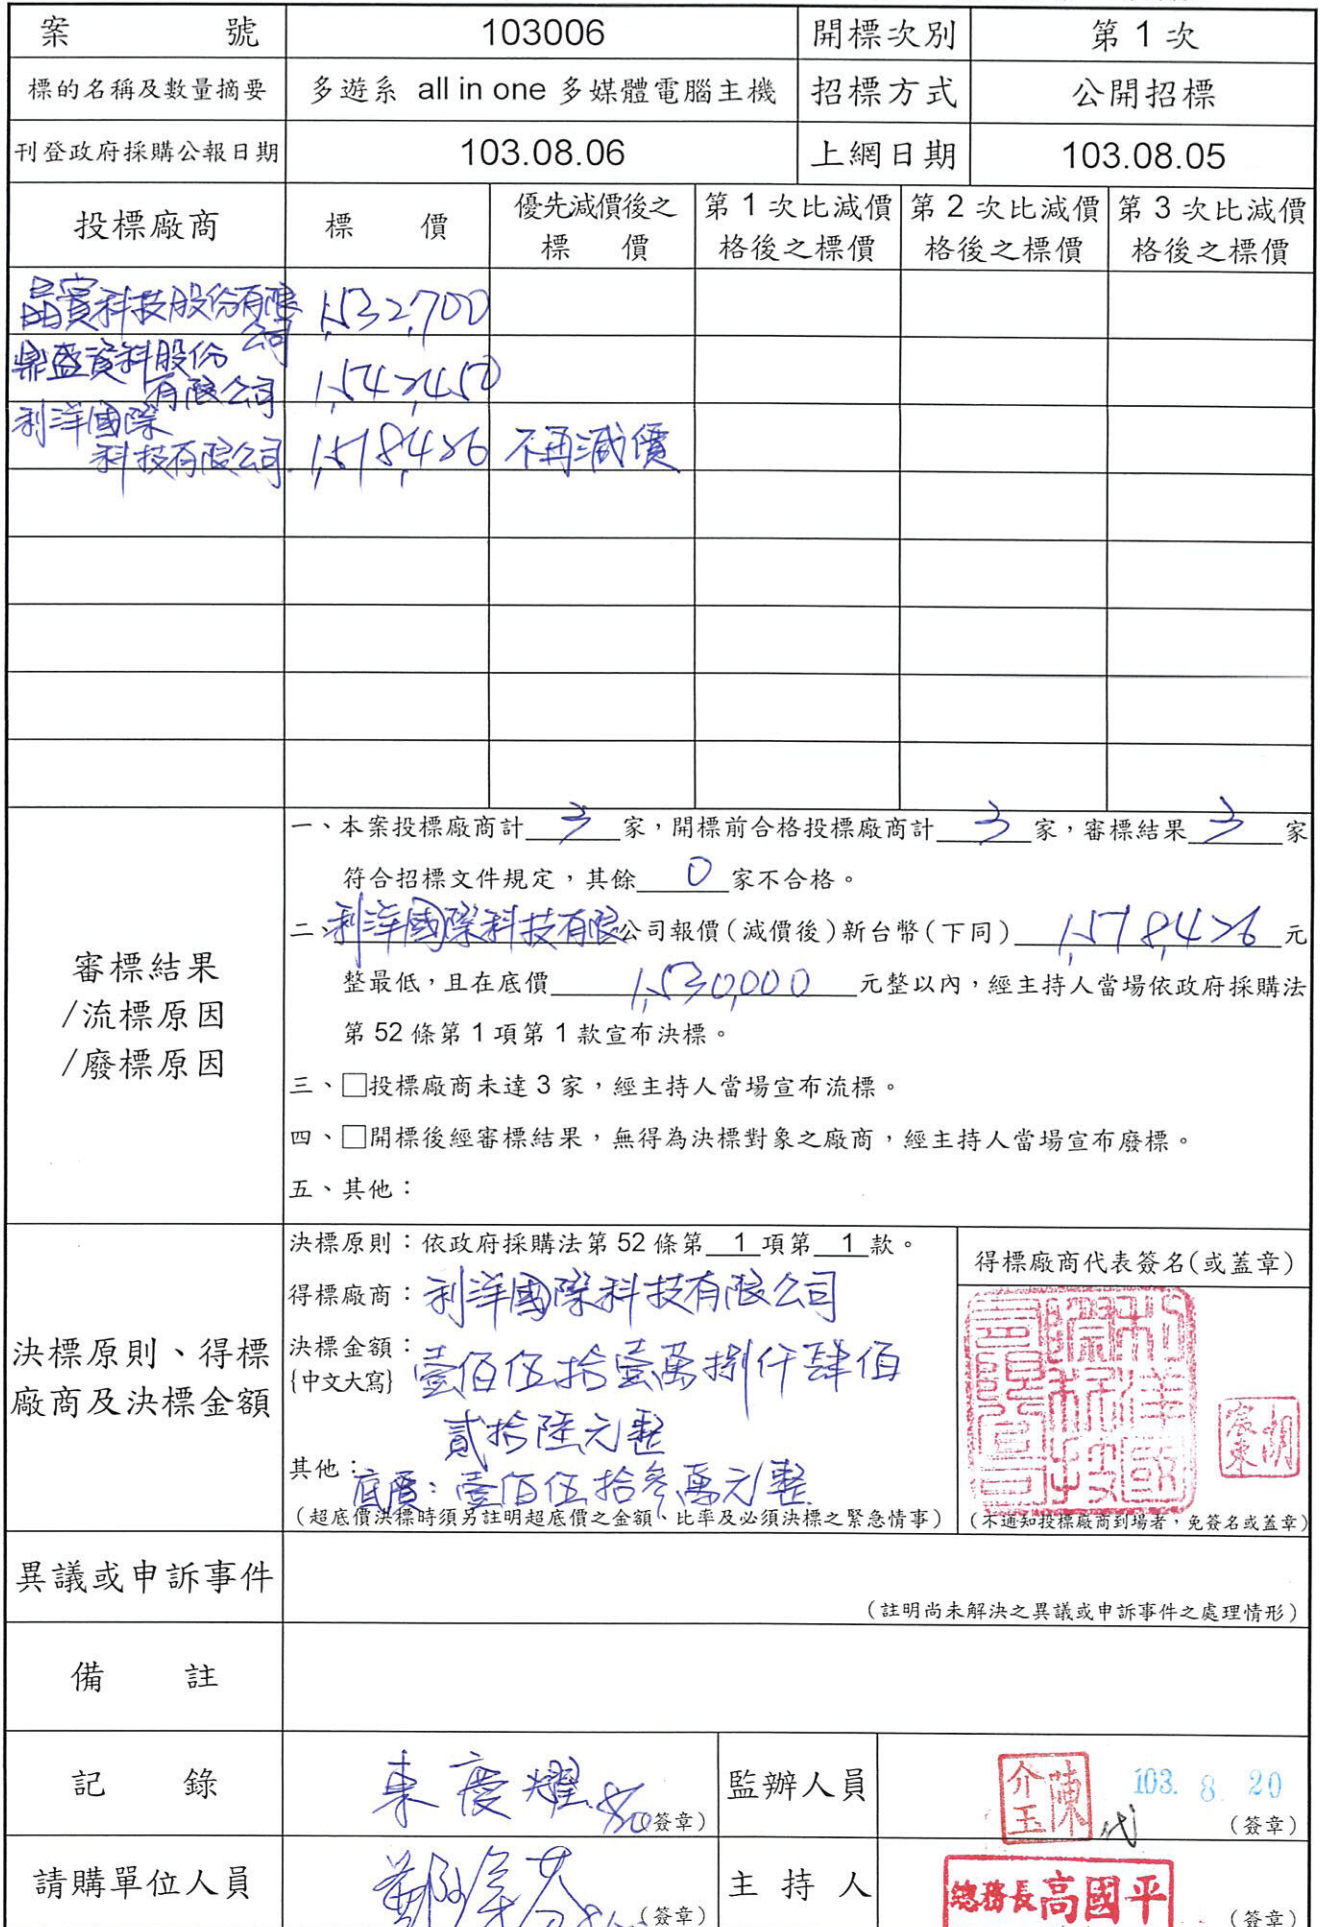 案 號 103006 開標次別 第 1 次
標的名稱及數量摘要 多遊系 all in one 多媒體電腦主機 招標方式 公開招標
刊登政府採購公報日期 103.08.06 上網日期 103.08.05
投標廠商 標 價 優先減價後之標 價 第 1 次比減價格後之標價 第 2 次比減價格後之標價 第 3 次比減價格後之標價
晶實科技股份有限公司 1,532,700
鼎盛資料股份有限公司 1,542,450
利洋國際科技有限公司 1,518,426 不再減價
審標結果
/流標原因
/廢標原因
一、本案投標廠商計 3 家，開標前合格投標廠商計 3 家，審標結果 3 家
符合招標文件規定，其餘 0 家不合格。
二、利洋國際科技有限公司報價(減價後)新台幣(下同) 1,518,426 元
整最低，且在底價 1,530,000 元整以內，經主持人當場依政府採購法
第 52 條第 1 項第 1 款宣布決標。
三、□投標廠商未達 3 家，經主持人當場宣布流標。
四、□開標後經審標結果，無得為決標對象之廠商，經主持人當場宣布廢標。
五、其他：
決標原則、得標
廠商及決標金額
決標原則：依政府採購法第 52 條第 1 項第 1 款。
得標廠商：利洋國際科技有限公司
決標金額：壹佰伍拾壹萬捌仟肆佰
{中文大寫}
貳拾陸元整
其他：底價：壹佰伍拾參萬元整
(超底價決標時須另註明超底價之金額、比率及必須決標之緊急情事)
得標廠商代表簽名(或蓋章)
利洋國際科技有限公司
胡
(不通知投標廠商到場者，免簽名或蓋章)
異議或申訴事件
(註明尚未解決之異議或申訴事件之處理情形)
備 註
記 錄 8/20 (簽章) 監辦人員 陳介玉 代 103. 8. 20 (簽章)
請購單位人員 (簽章) 主 持 人 總務長高國平 (簽章)